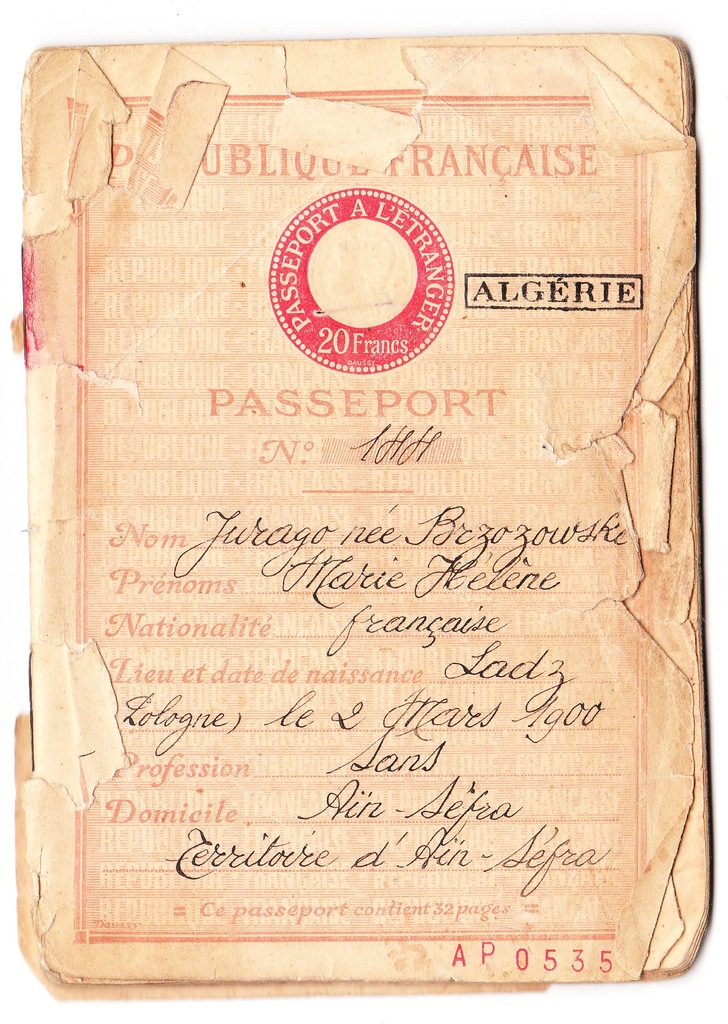 RÉPUBLIQUE FRANÇAISE
PASSEPORT A L'ETRANGER
20 Francs
DAUSSY
ALGÉRIE
PASSEPORT
N°
Nom Jurago née Brzozowski
Prénoms Marie Hélène
Nationalité française
Lieu et date de naissance Ladz
Pologne) le 2 Mars 1900
Profession Sans
Domicile Aïn-Séfra
Territoire d'Aïn-Séfra
= Ce passeport contient 32 pages =
Daussy
AP0535